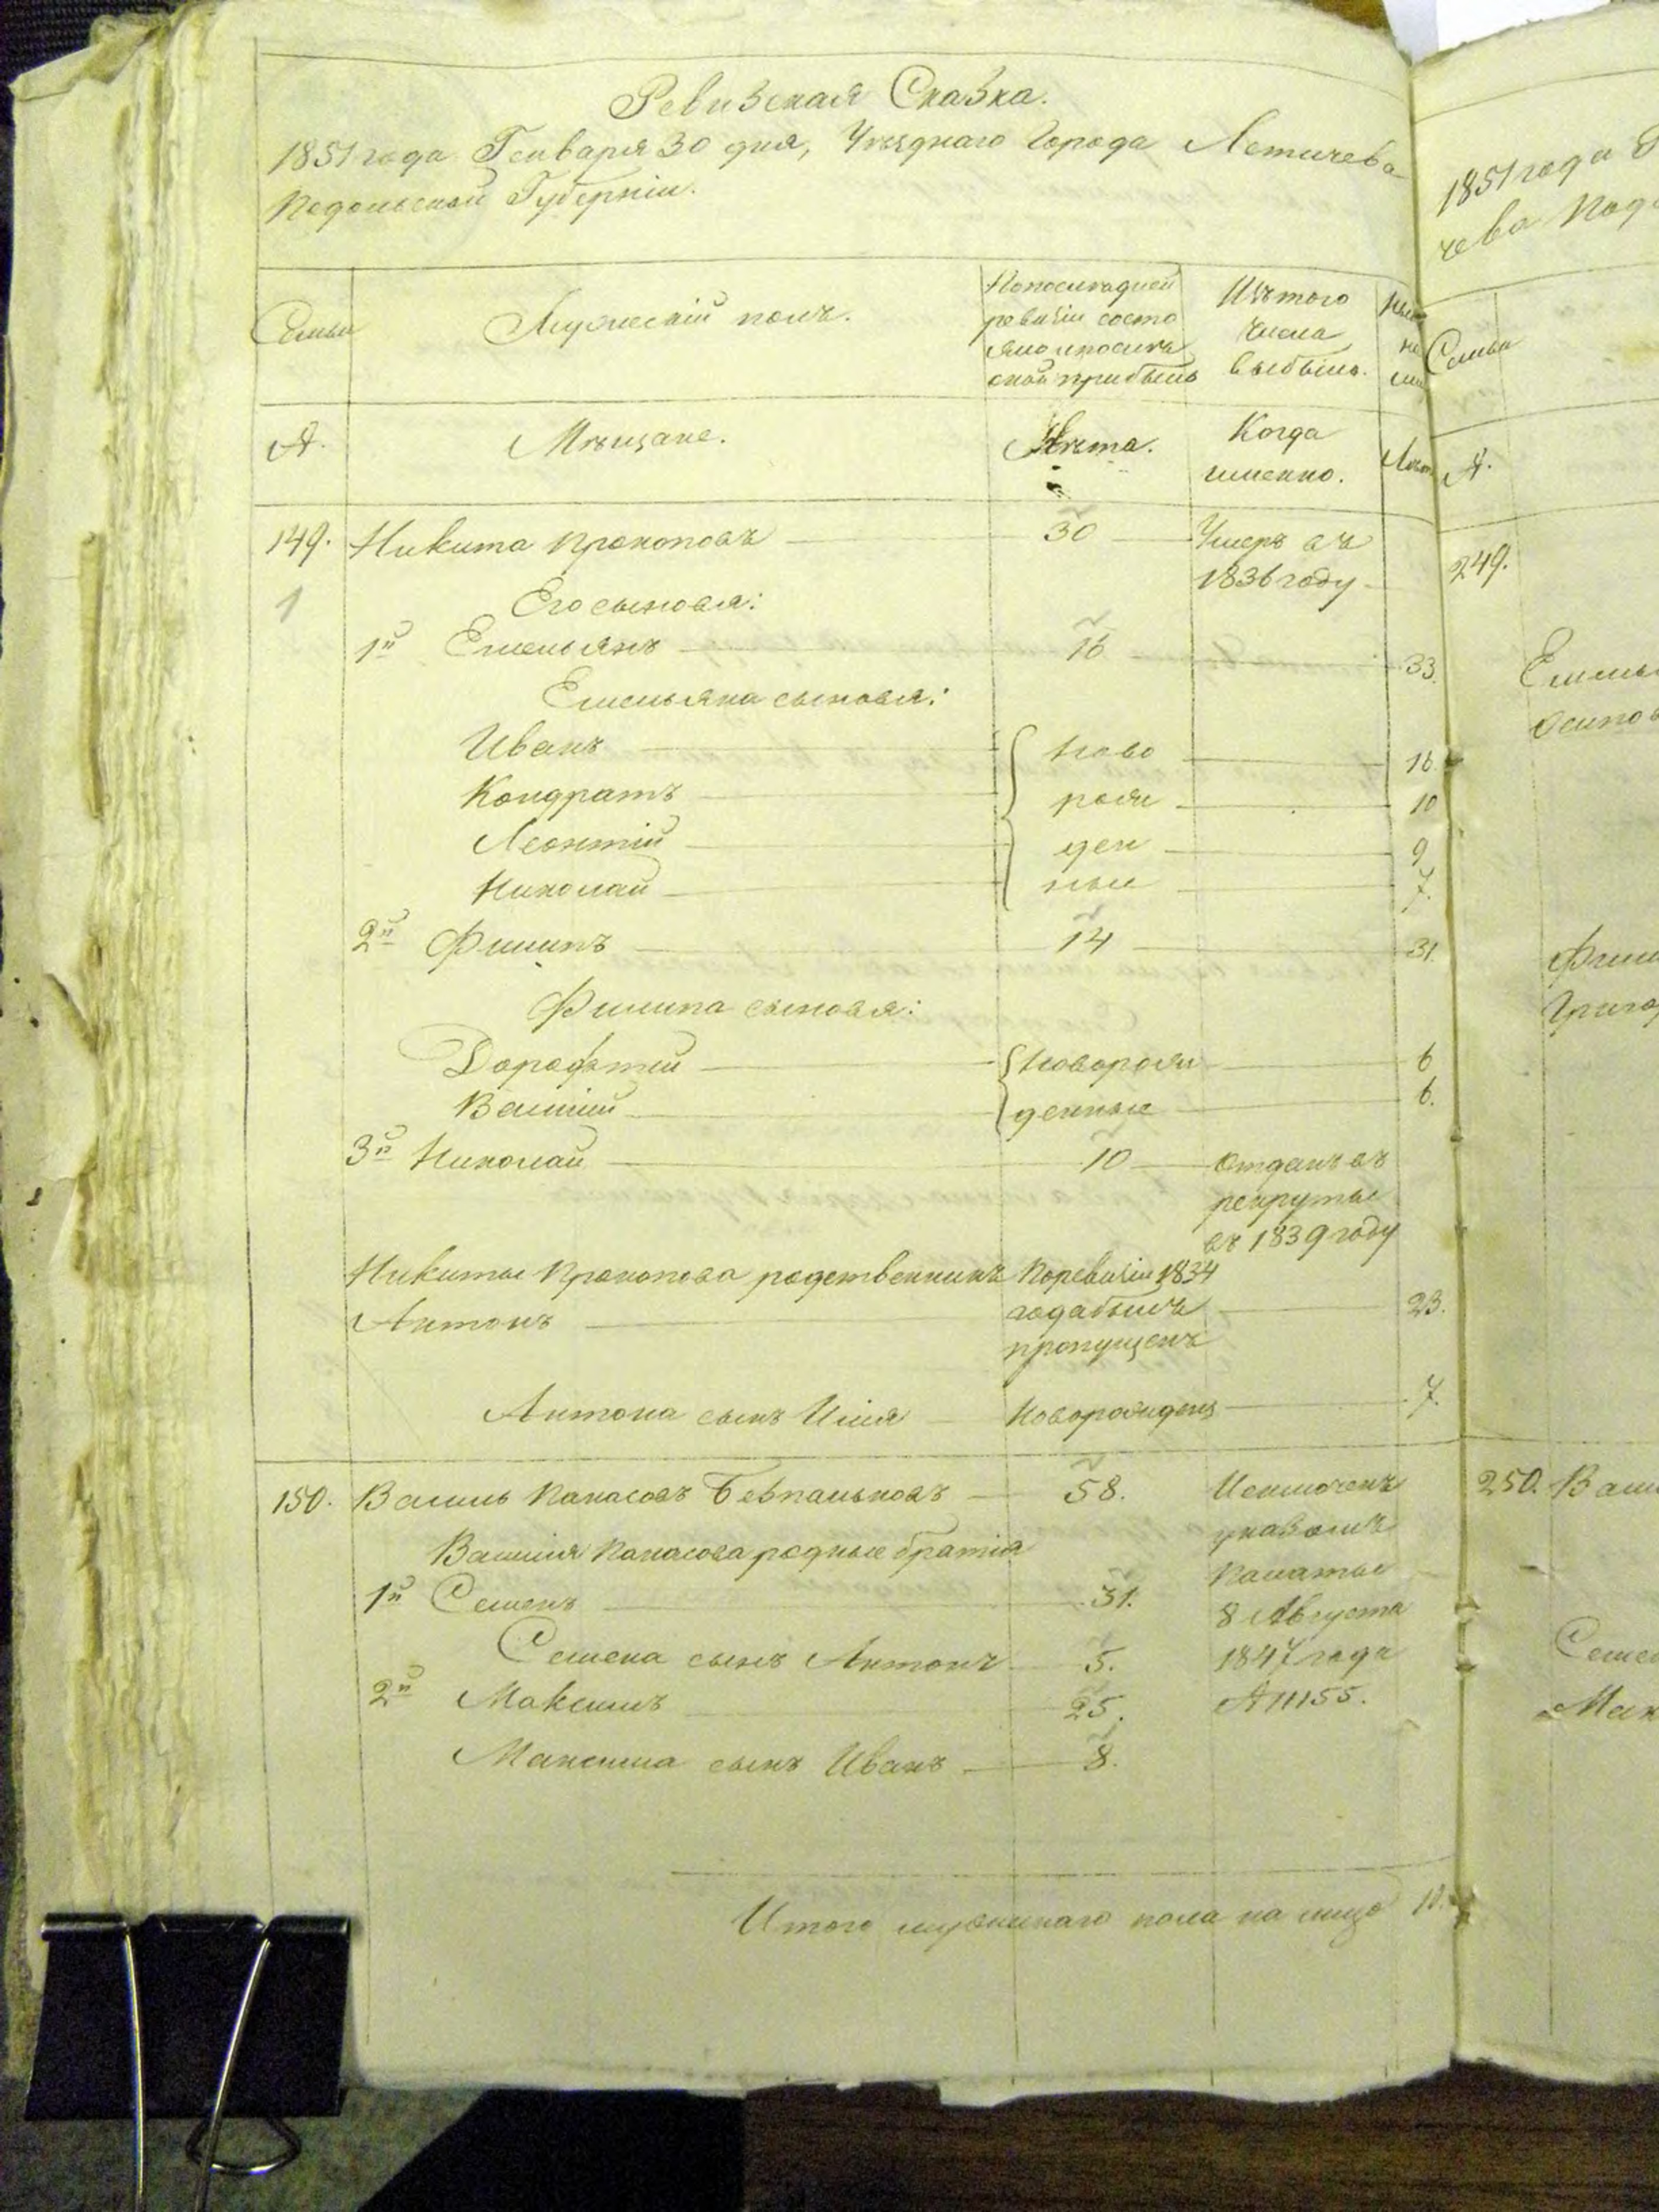 Ревизская Сказка.
1851 года Генваря 30 дня, Уѣзднаго Города Летичева
Подольской Губерніи.
Семьи
Мужескій полъ.
По последней
ревизіи состо
яло и после
оной прибыло
Изъ того
числа
выбыло.
А.
Мѣщане.
Лѣта.
Когда
именно.
149. Никита Прокоповъ 30 Умеръ въ
1836 году
1
Его сыновья:
1й Емельянъ 16 33.
Емельяна сыновья:
Иванъ ново 16.
Кондратъ рож 10
Леонтій ден 9
Николай ные 7.
2й Филипъ 14 31.
Филипа сыновья:
Дорофѣтей новорож 6
Василій денные 6.
3й Николай 10 отданъ въ
рекруты
въ 1839 году
Никиты Прокопова родственникъ По ревизіи 1834
Антонъ года былъ 23.
пропущенъ
Антона сынъ Илія Новорожденъ 7.
150. Василь Панасовъ Безпальковъ 58. Исключенъ
указомъ
Василія Панасова родные братія
Палаты
1й Семенъ 31.
8 Августа
Семена сынъ Антонъ 5. 1847 года
2й Максимъ 25. № 11155.
Максима сынъ Иванъ 8.
Итого мужескаго пола на лицо 10.
1851 года
чева Подо
Семьи
А.
249.
Емель
Осипов
Фили
Григо
250. Васи
Семен
Мак